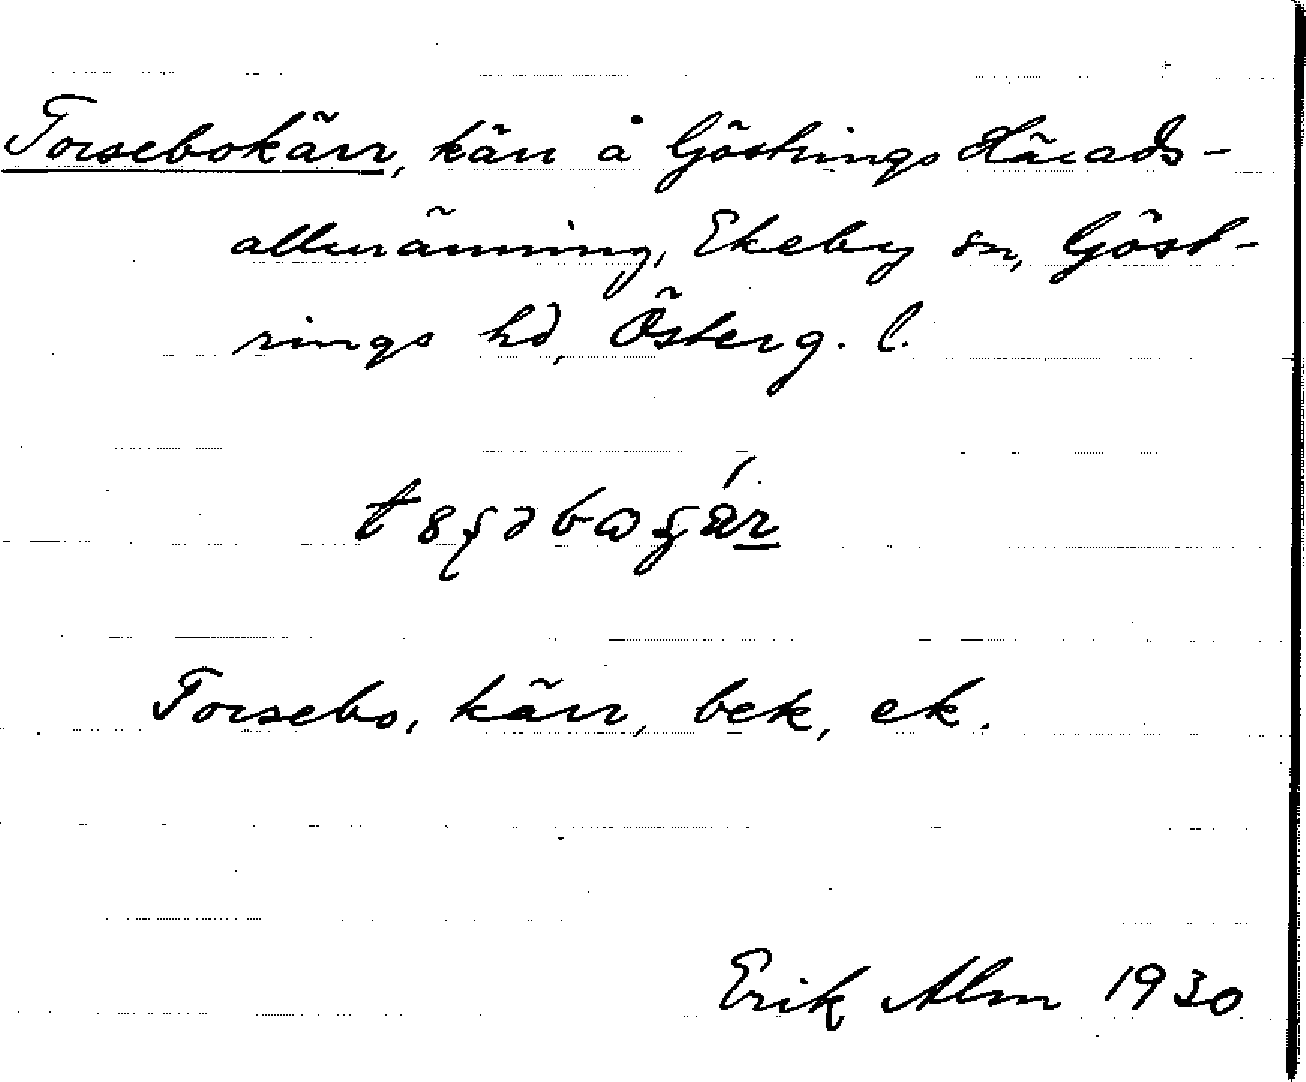 Torsebokärr, kärr å Göstrings Härads-
allmänning, Ekeby sn, Göst-
rings hd, Österg. l.
Torsebo, kärr, bek, ek.
Erik Alm 1930